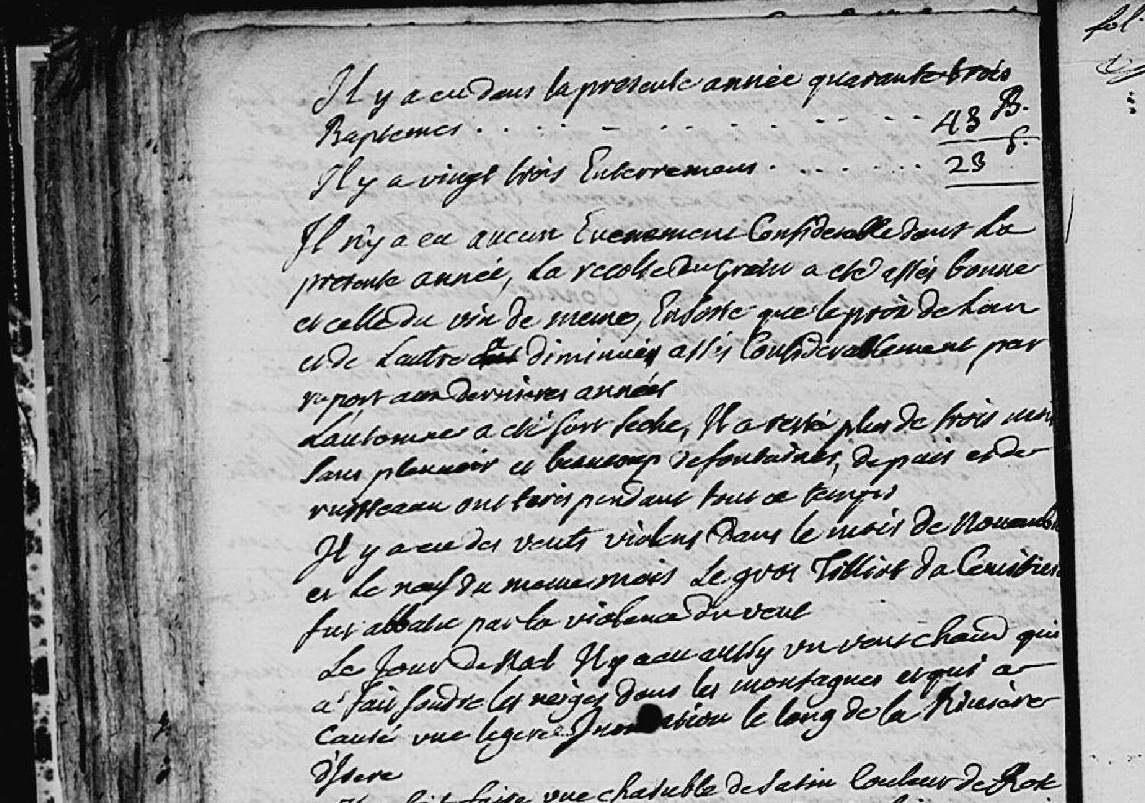 Il y a eu dans la presente année quarante trois
Baptemes . . . . . . . . . . . 43 B.
Il y a vingt trois Enterremens . . . . . . 23 S.
Il n'y a eu aucun Evenement Considerable dans La
presente année, La recolte du Grain a eté assés bonne
et celle du vin de meme, Ensorte que le prix de Lun
et de Lautre diminués assés Considerablement par
raport aux dernieres années
Lautomne a eté fort seche, Il a resté plus de trois mois
sans pleuvoir et beaucoup de fontaines, de puis et de
ruisseau ont taris pendant tout ce temps
Il y a eu des vents violens Dans le mois de Novembre
et le neuf du meme mois Le gros Tilliet du Cemitiere
fut abbatu par la violence du vent
Le Jour de Noel Il y a eu aussy un vent chaud qui
a fait fondre les neiges dans les montagnes et qui a
causé une legere Inondation le long de la Riviere
d'Isere
faire une chasuble de Satin Couleur de Rose
fol.